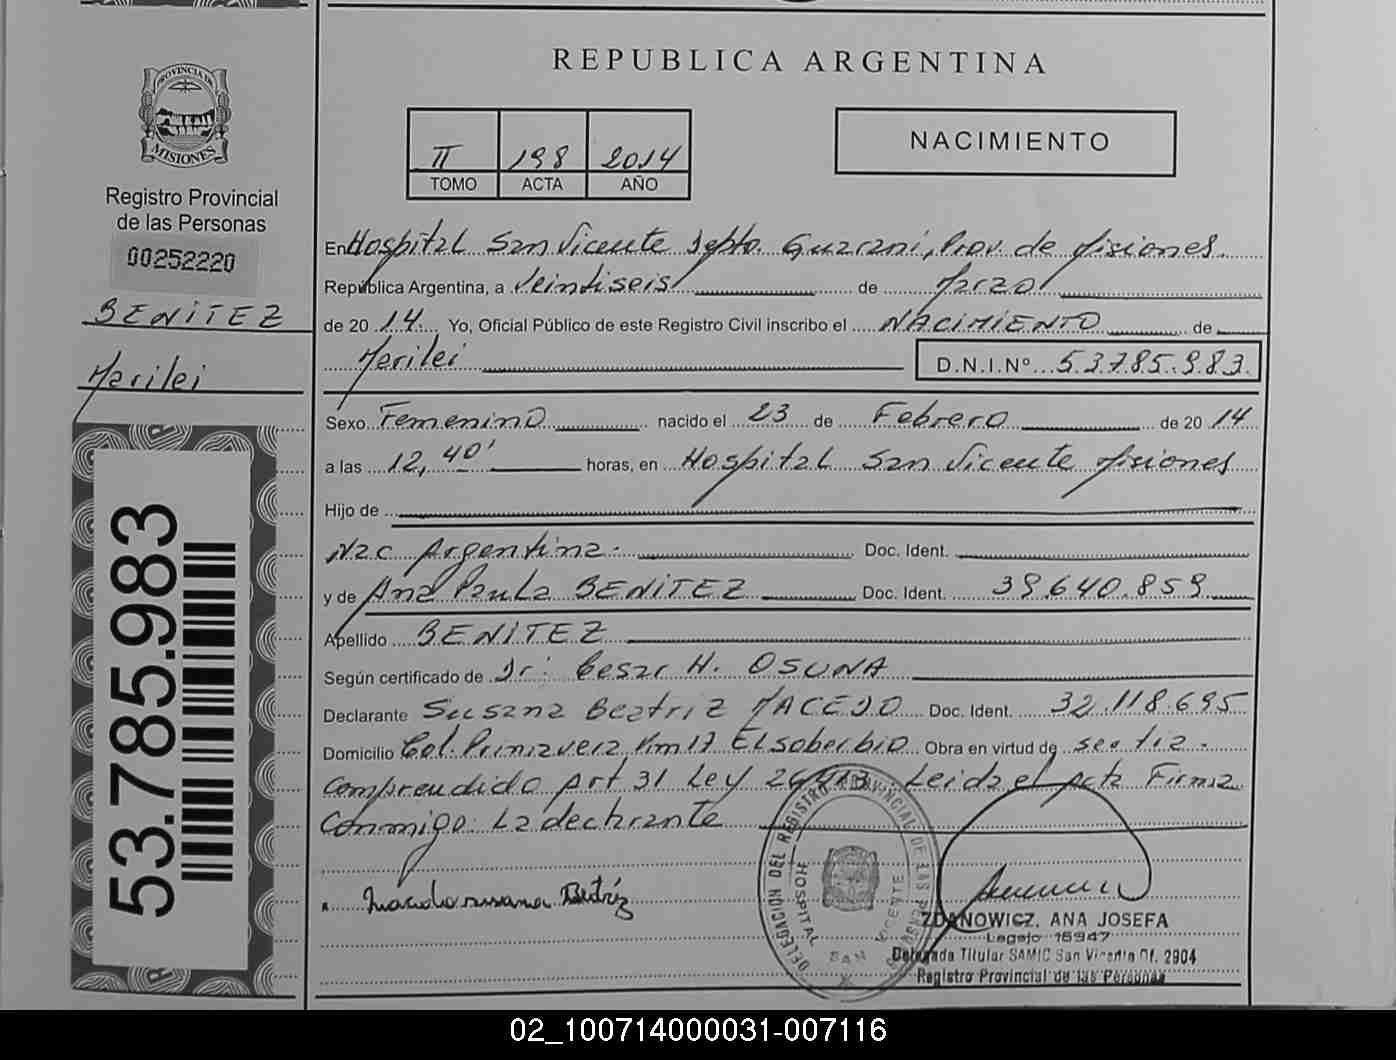 PROVINCIA DE
MISIONES
Registro Provincial
de las Personas
00252220
BENITEZ
Marilei
53.785.983
REPUBLICA ARGENTINA
II 198 2014
TOMO ACTA AÑO
NACIMIENTO
En Hospital San Vicente Depto. Guarani, Prov. de Misiones
República Argentina, a Veintiseis de Marzo
de 20 14 Yo, Oficial Público de este Registro Civil inscribo el NACIMIENTO de
Marilei D.N.I.Nº 53.785.983.
Sexo Femenino nacido el 23 de Febrero de 20 14
a las 12,40' horas, en Hospital San Vicente Misiones
Hijo de
Nac Argentina. Doc. Ident.
y de Ana Paula BENITEZ Doc. Ident. 39.640.859
Apellido BENITEZ
Según certificado de Dr: Cesar H. OSUNA
Declarante Susana Beatriz MACEDO Doc. Ident. 32.118.695
Domicilio Col. Primavera Km 17 El soberbio Obra en virtud de ser tia.
Comprendido Art 31 Ley 26413 Leida el Acta Firma
Conmigo La declarante
Macedo susana Beatriz
DELEGACION DEL REGISTRO PROVINCIAL DE LAS PERSONAS
HOSPITAL SAN VICENTE
ZDANOWICZ, ANA JOSEFA
Legajo 15947
Delegada Titular SAMIC San Vicente Of. 2904
Registro Provincial de las Personas
02_100714000031-007116